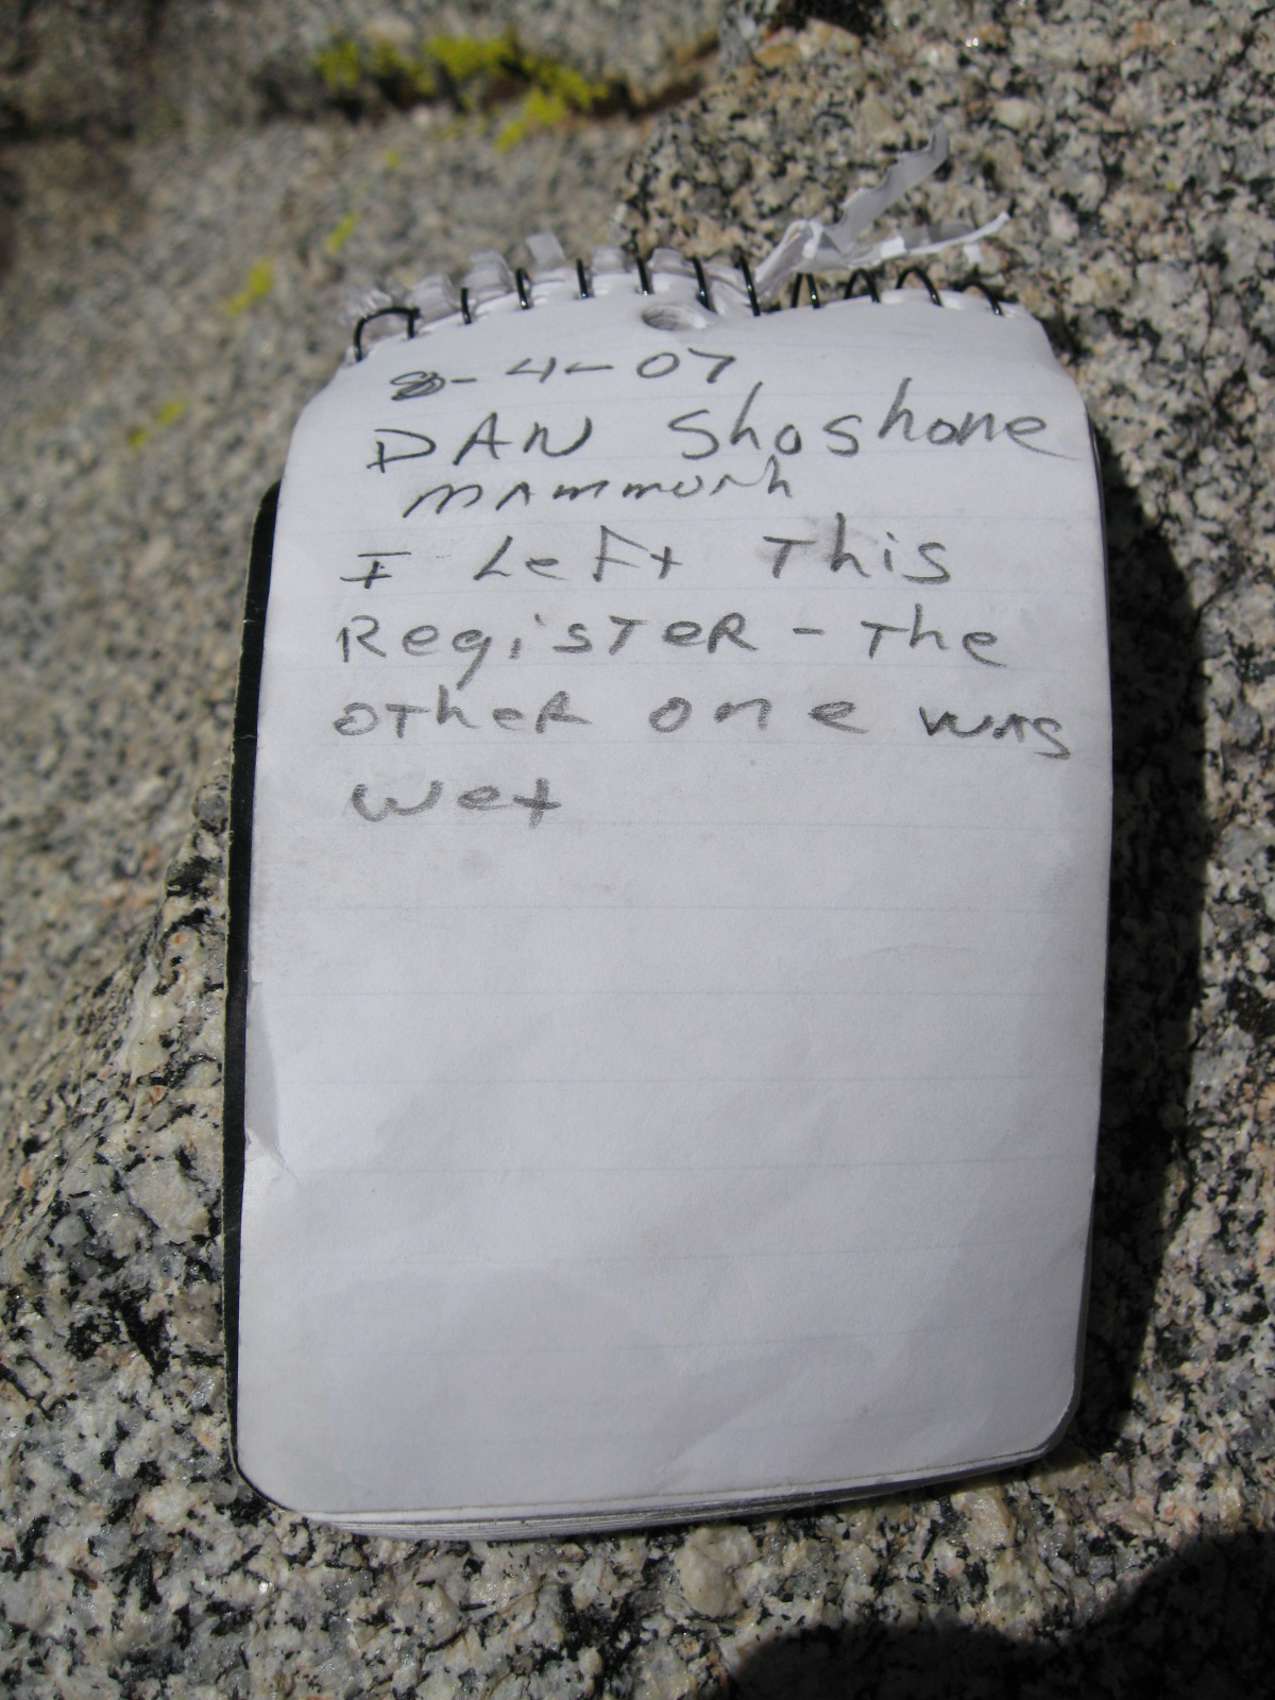 8-4-07
DAN Shoshone
mammoth
I Left This
RegisTeR - The
oTheR one was
wet